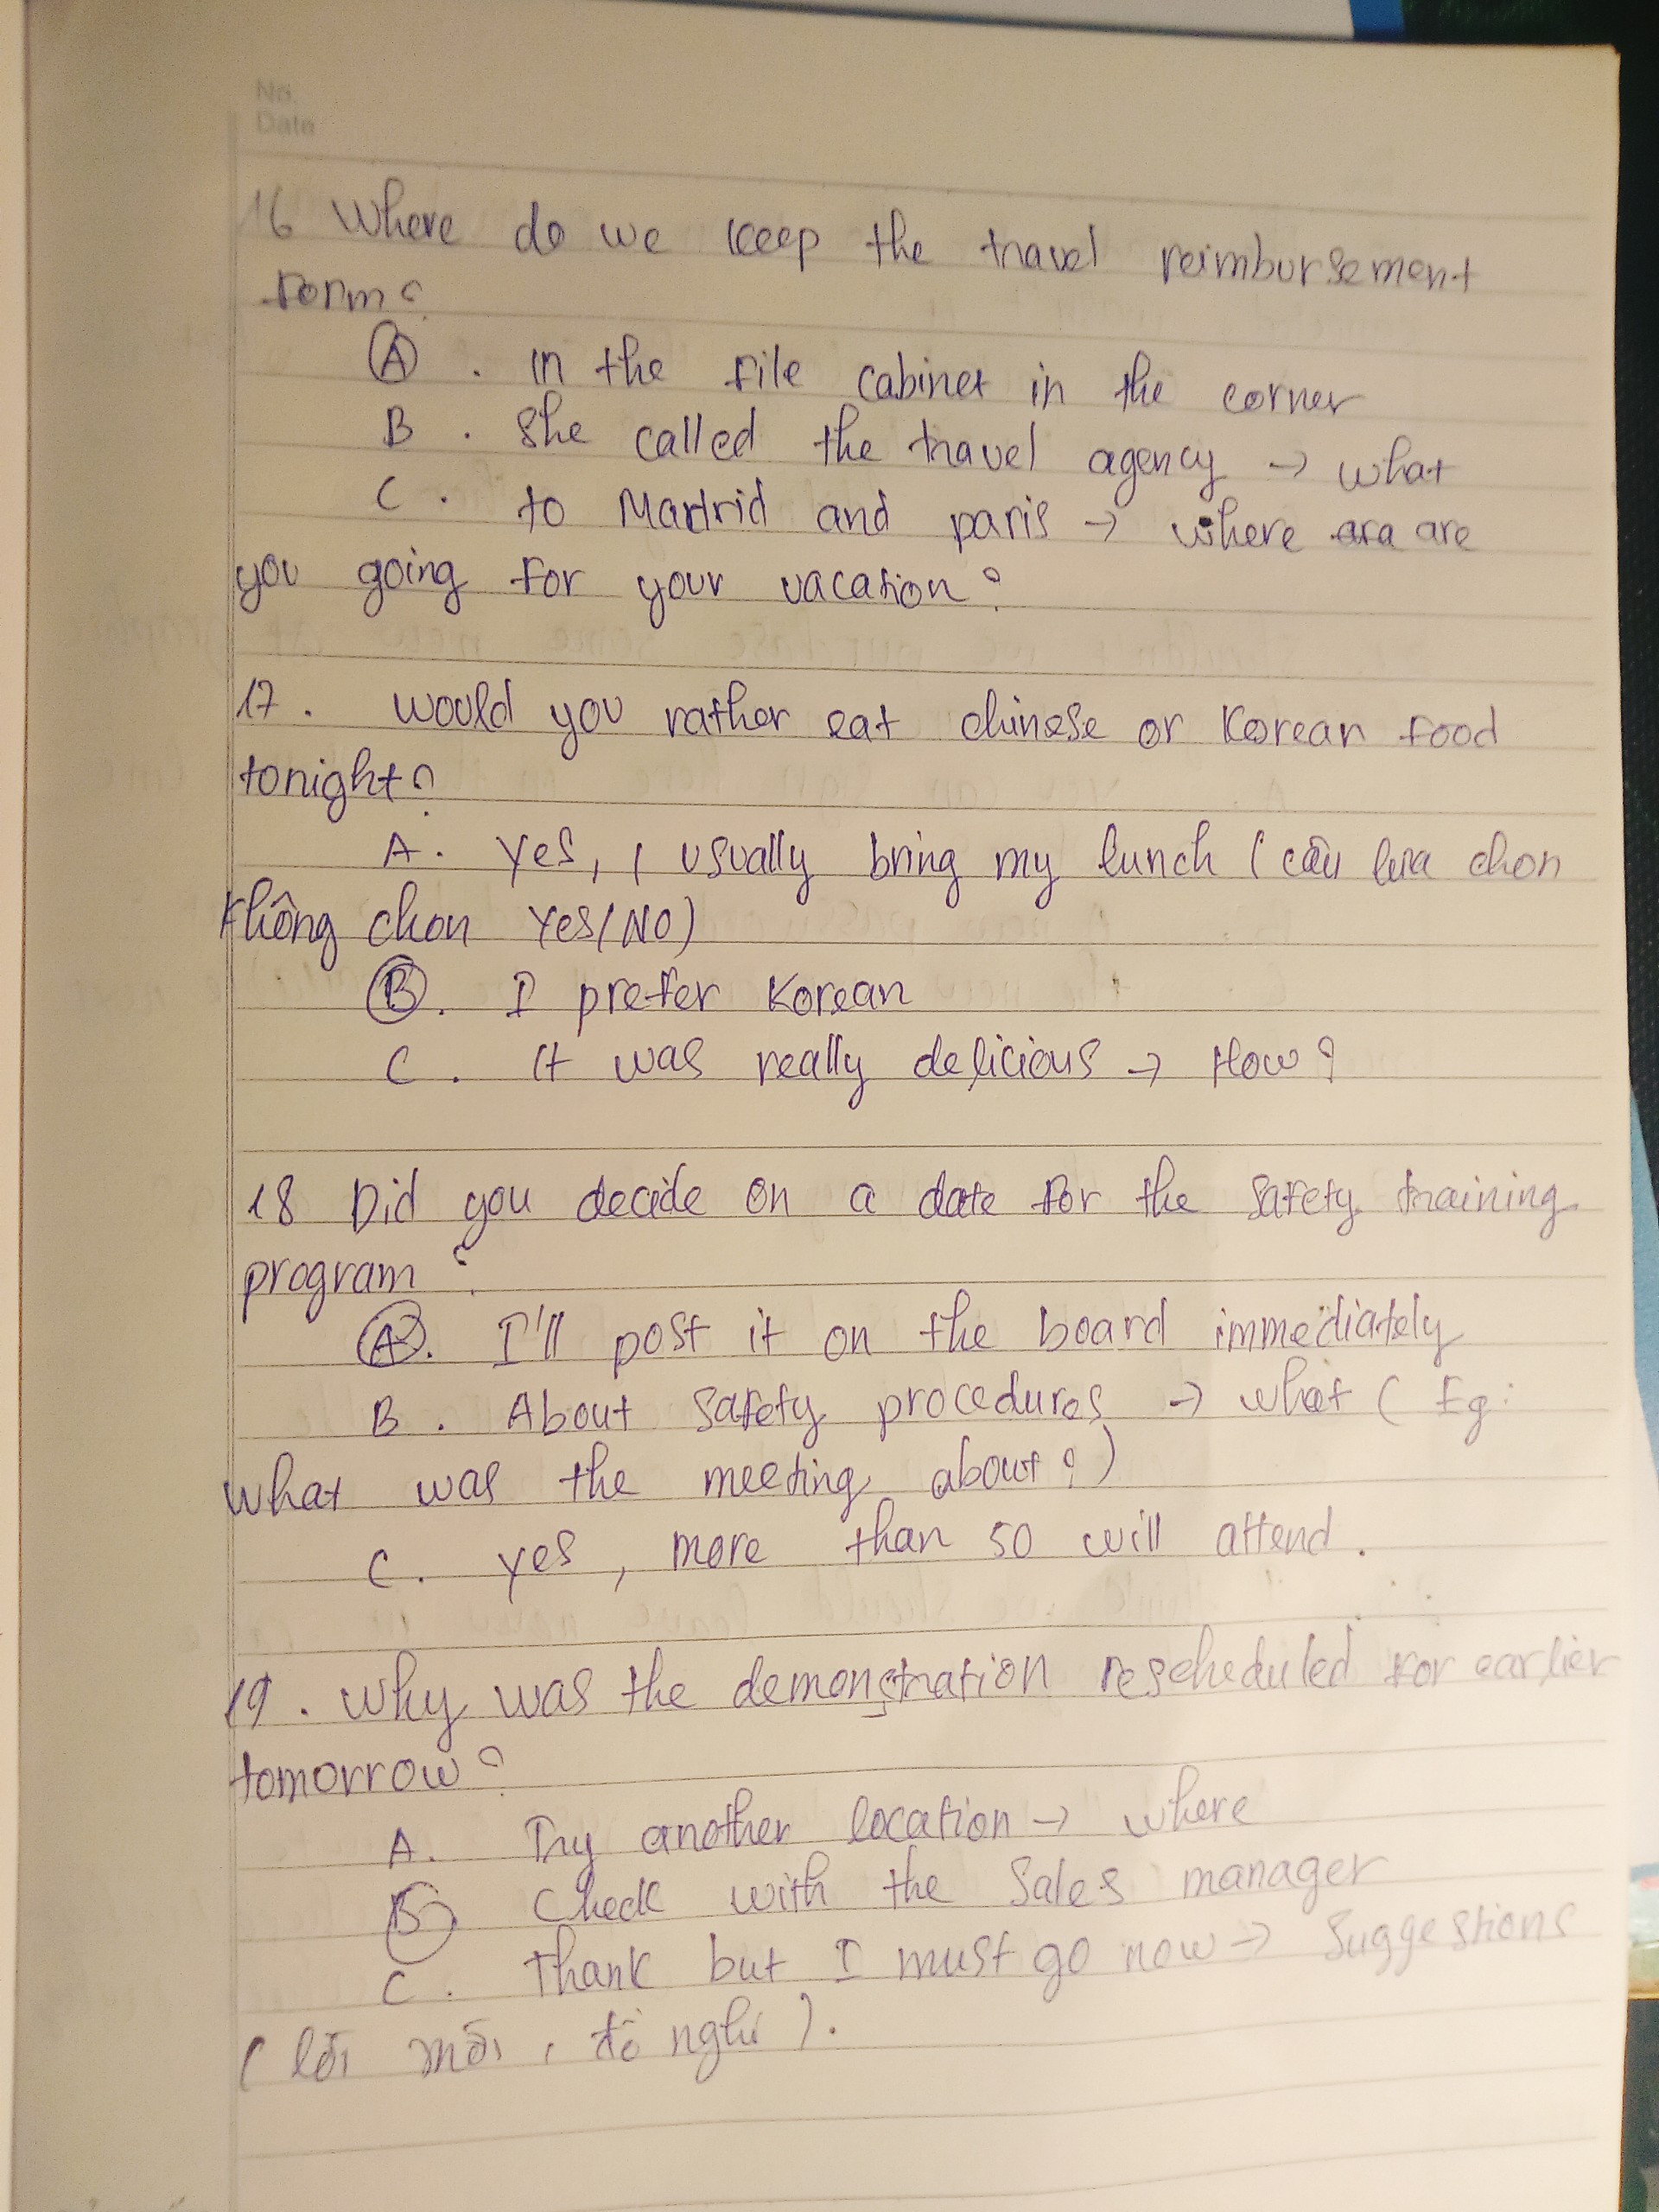 No.
Date
16 Where do we keep the travel reimbursement
form?
A. in the file cabinet in the corner
B. She called the travel agency → what
C. to Madrid and paris → where ara are
you going for your vacation?
17. would you rather eat chinese or Korean food
tonight?
A. Yes, I usually bring my lunch (câu lựa chọn
không chọn Yes/No)
B. I prefer Korean
C. It was really delicious → How?
18 Did you decide on a date for the safety training
program?
A. I'll post it on the board immediately
B. About safety procedures → what (Eg:
what was the meeting about?)
C. yes, more than 50 will attend.
19. Why was the demonstration rescheduled for earlier
tomorrow?
A. Try another location → where
B Check with the Sales manager
C. Thank but I must go now → Suggestions
(lời mời, đề nghị).